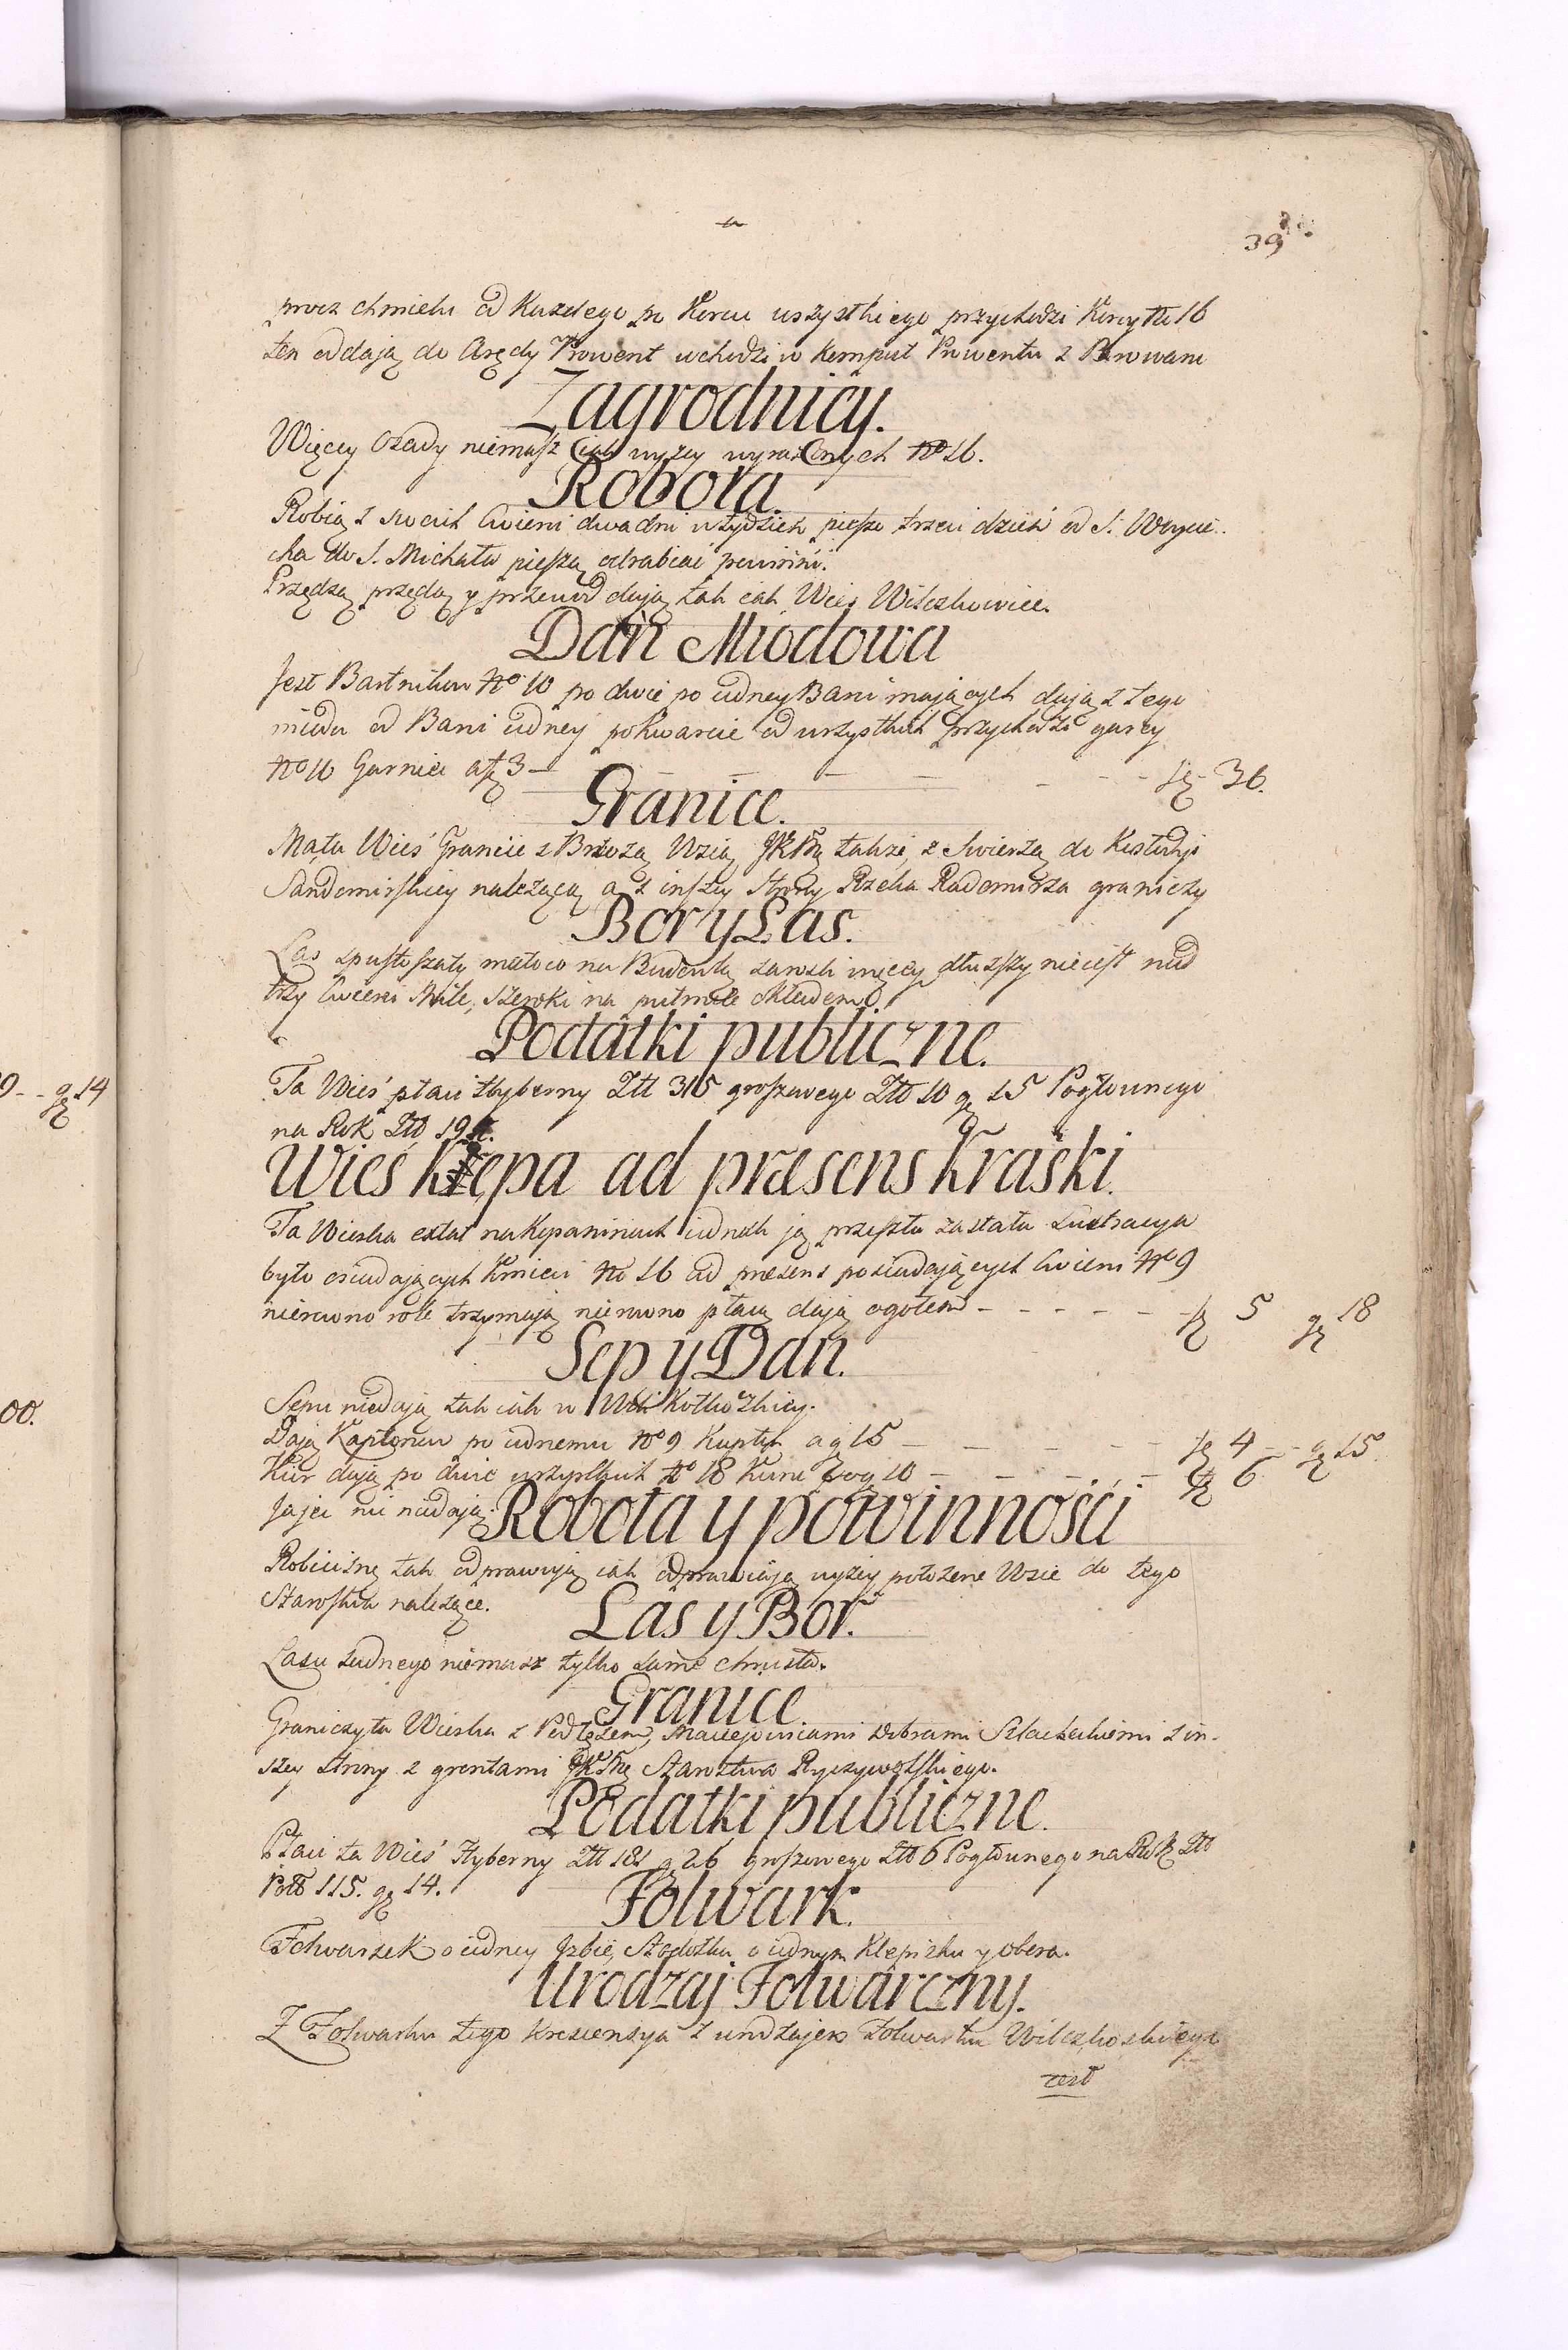 39
procz chmielu od Kazdego po Korcu wszystkiego przychodzi Korcy No 16
ten oddają do Arędy Prowent wchodzi w Komput Prowentu z Browaru
Zagrodnicy.
Więcey Osady niemasz iak wyzey wyrazonych No 16.
Robota.
Robią z swoich Cwierci dwa dni w tydzien pieszo trzeci dzień od S. Woycie..
cha do S. Michała pieszą odrabiać powinni.
Przędzą przędą y przewod dają tak iak Wieś Wilczkowice.
Dań Miodowa
Jest Bartnikow No 10 po dwie po iedney Bani maiących dają z tego
miodu od Bani iedney po kwarcie od wszystkich przychodzi garcy
No Garniec a fl 3 - - - - - - fl 36.
Granice.
Ma ta Wieś Granice z Brzozą Wsią JKMci takze z Swierzą do Kustodyi
Sandomirskiey nalezącą a z inszey Strony Rzeka Radomirza graniczy
Bor y Las.
Las spustoszały mało co na Budowlą zamsk więcey dłuzszy nieiest nad
trzy Cwierci Mile, szeroki na puł mile Składem
Podatki publiczne.
Ta Wieś płaci Hyberny Ztt 315 groszowego Ztt 10 gr 15 Pogłownego
na Rok Ztt
Wieś Kłępa ad præsens Kraski.
Ta Wioska extat na Kopaninach iednak ją przeszła zastała Lustracya
było osiadających Kmieci No 16 ad præsens posiadających Cwierci No 9
nierowno role trzymają nierowno płacą dają ogołem - - - - - fl 5 gr 18
Sep y Dań.
Sepu niedają tak iak w Woli Kotkoszkiey.
Dają Kapłonow po iednemu No 9 Kapłon a g 15 - - - - - fl 4 - gr 15.
Kur dają po dwie wszystkich No 18 Kura po g 10 - - - - - fl 6
Jajec nie niedają.
Robota y powinności
Robociznę tak odprawują iak odprawiają wyzey połozone Wsie do tego
Starostwa nalezące.
Las y Bor.
Lasu zadnego niemasz tylko same chrusta.
Granice
Graniczy ta Wioska z Podłęzem, Maciejowicami Dobrami Szlacheckiemi z in-
szey strony z gruntami JKMci Starostwa Ryczywolskiego.
Podatki publiczne.
Płaci ta Wieś Hyberny Ztt 181 g 26 groszowego Ztt 6 Pogłownego na Rok Ztt
Poll 115. gr 14.
Folwark.
Folwarzek o iedney Izbie, Stodołka o iednym Klepisku y obora.
Urodzaj Folwarczny.
Z Folwarku tego Krescensya z urodzajem Folwarku Wilczkoskiego
iest
gr 14
00.